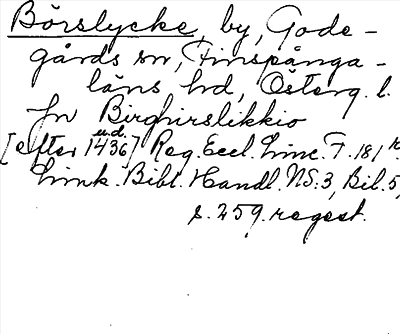 Börslycke, by, Gode-
gårds sn, Finspånga-
läns hd, Österg. l.
fn Birghirslikkio
[efter 1436] u.d. Reg. Eccl. Linc. F. 181 r.
Link. Bibl. Handl. NS. 3, Bil. 5,
s. 259. regest.